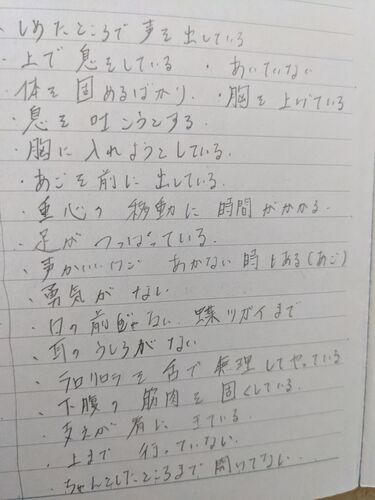 ・しめたところで声を出している
・上で息をしている ・あいていない
・体を固めるばかり ・胸を上げている
・息を吐こうとする
・胸に入れようとしている
・あごを前に出している
・重心の移動に時間がかかる
・足がつっぱっている
・声がいい 口が あかない時もある(あご)
・勇気がない
・口の前じゃない 蝶ツガイまで
・耳のうしろがない
・ラロリロラを舌で無理してやっている
・下腹の筋肉を固くしている
・支えが肩にきている
・上まで行っていない
・ちゃんとしたところまで開けてない